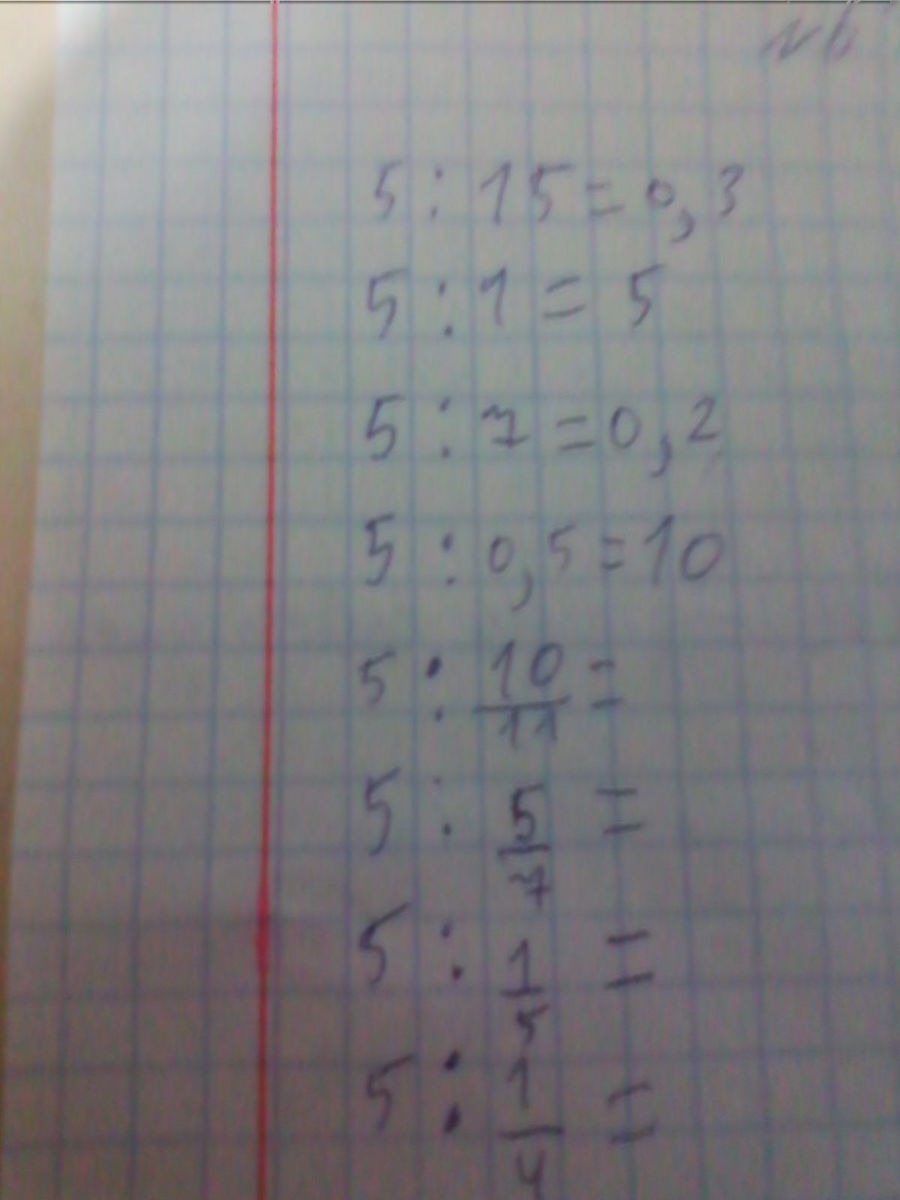 №6
5 : 15 = 0,3
5 : 1 = 5
5 : 7 = 0,2
5 : 0,5 = 10
5 : 10/11 =
5 : 5/7 =
5 : 1/5 =
5 : 1/4 =